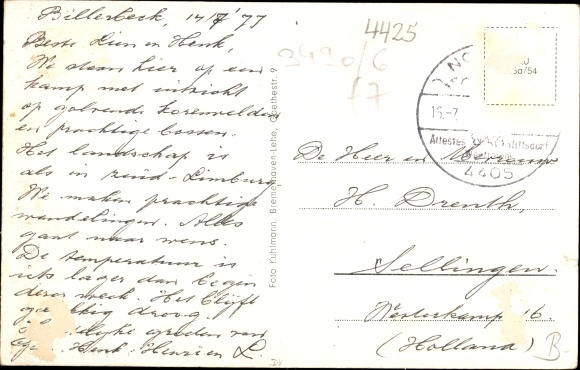 Billerbeck, 14/7 '77
Beste Lien en Henk,
We staan hier op een
kamp met uitzicht
op golvende korenvelden
en prachtige bossen.
Het landschap is
als in zuid-Limburg
We maken prachtige
wandelingen. Alles
gaat naar wens.
De temperatuur is
iets lager dan begin
deze week. Het blijft
droog.
groeten van
Henk, Henri en L.
4425
3490/6
f7
Foto Kuhlmann, Bremerhaven-Lehe, Goethestr. 9
15.-7.
Ältestes Stiftsdorf
4405
De Heer en Mevrouw
H. Drenth,
Sellingen.
Westerkamp 16.
(Holland)
B-